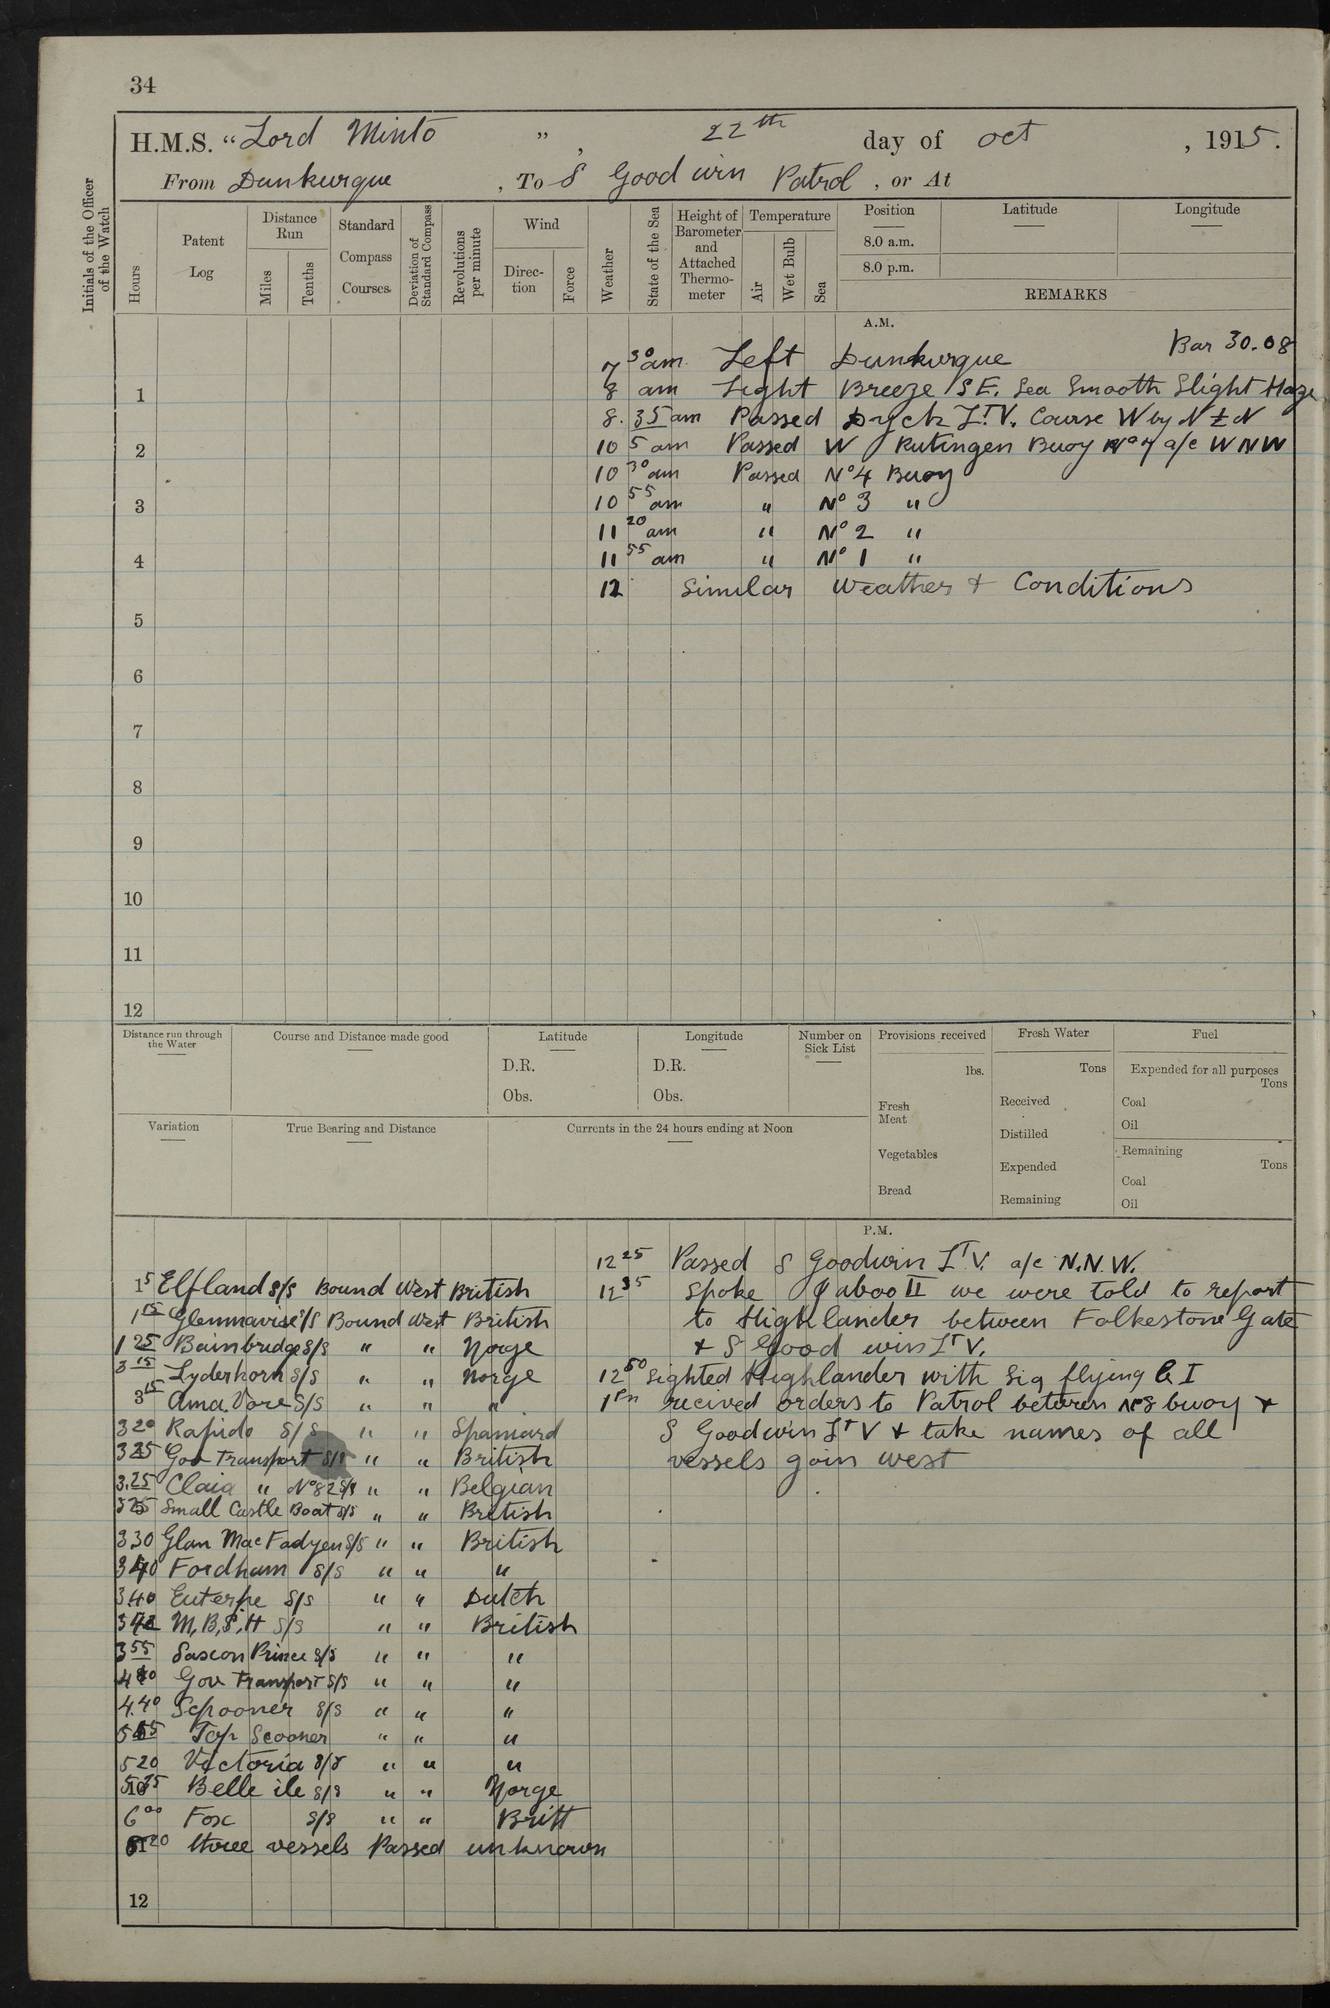 34
H.M.S. "Lord Minto", 22th day of Oct, 1915.
From Dunkurque, To S Goodwin Patrol, or At
Initials of the Officer of the Watch
Hours
Patent Log
Distance Run
Miles
Tenths
Standard Compass Courses.
Deviation of Standard Compass
Revolutions per minute
Wind
Direction
Force
Weather
State of the Sea
Height of Barometer and Attached Thermometer
Temperature
Air
Wet Bulb
Sea
Position
8.0 a.m.
8.0 p.m.
Latitude
Longitude
REMARKS
A.M.
Bar 30.08
7 30 am Left Dunkurque
8 am Light Breeze SE. Sea Smooth Slight Haze
8.35 am Passed Dyck LT.V. Course W by N ½ N
10 5 am Passed W Rutingen Buoy No 7 a/c WNW
10 30 am Passed No 4 Buoy
10 55 am " No 3 "
11 20 am " No 2 "
11 55 am " No 1 "
12 Similar Weather & Conditions
1
2
3
4
5
6
7
8
9
10
11
12
Distance run through the Water
Course and Distance made good
Latitude
D.R.
Obs.
Longitude
D.R.
Obs.
Number on Sick List
Provisions received
lbs.
Fresh Meat
Vegetables
Bread
Fresh Water
Tons
Received
Distilled
Expended
Remaining
Fuel
Expended for all purposes
Tons
Coal
Oil
Remaining
Tons
Coal
Oil
Variation
True Bearing and Distance
Currents in the 24 hours ending at Noon
P.M.
12 25 Passed S Goodwin LT.V. a/c N.N.W.
12 35 Spoke II we were told to report
to Highlander between Folkestone Gate
& S Good win LT V.
12 50 Sighted Highlander with Sig flying I
1 Pm recived orders to Patrol between No 8 buoy &
S Goodwin LT V & take names of all
vessels goin west
1 5 Elfland S/S Bound West British
1 15 Glenmavis S/S Bound West British
1 25 Bainbridge S/S " " Norge
3 15 Lyderhorn S/S " " Norge
3 15 Ama Vore S/S " " "
3 20 Rapido S/S " " Spaniard
3 25 Gov Transport S/S " " British
3.25 Claia " No 82 S/S " " Belgian
3 25 Small Castle Boat S/S " " British
3.30 Glan MacFadyen S/S " " British
3 40 Fordham S/S " " "
3.40 Euterpe S/S " " Dutch
M.B.S.H S/S " " British
3 55 Saxon Prince S/S " " "
Gov Transport S/S " " "
4.40 Scpooner S/S " " "
Top Scooner " " "
5 20 Victoria S/S " " "
Belle ile S/S " " Norge
6 00 Fox S/S " " Britt
three vessels Passed unknown
12